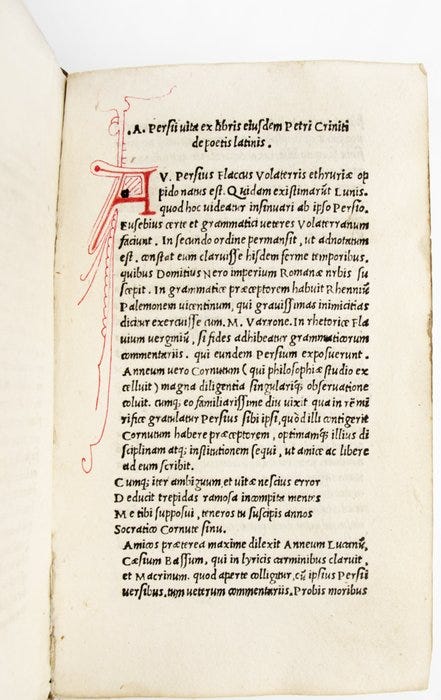 .A. Persii uita ex libris eiusdem Petri Criniti
de poetis latinis.
AV. Persius Flaccus Volaterris ethruriæ op
pido natus est. Quidam existimarũt Lunis.
quod hoc uideatur insinuari ab ipso Persio.
Eusebius certe et grammatici ueteres Volaterranum
faciunt. In secundo ordine permansit, ut adnotatum
est. constat eum claruisse hisdem ferme temporibus.
quibus Domitius Nero imperium Romanæ urbis su
scepit. In grammatice præceptorem habuit Rhenniũ
Palemonem uicentinum, qui grauissimas inimicitias
dicitur exercuisse cum. M. Varrone. In rhetorice Fla
uium uerginiũ, si fides adhibeatur grammaticorum
commentariis. qui eundem Persium exposuerunt.
Anneum uero Cornutum (qui philosophiæ studio ex
celluit) magna diligentia singulariq; obseruatione
coluit. cumq; eo familiarissime diu uixit qua in re mi
rifice gratulatur Persius sibi ipsi, quòd illi contigerit
Cornutum habere præceptorem, optimamq; illius di
sciplinam atq; institutionem sequi, ut amice ac libere
ad eum scribit.
Cumq; iter ambiguum, et uitæ nescius error
Deducit trepidas ramosa in compita mentes
Me tibi supposui, teneros tu suscipis annos
Socratico Cornute sinu.
Amicos præterea maxime dilexit Anneum Lucanũ,
Cæsium Bassum, qui in lyricis carminibus claruit,
et Macrinum. quod aperte colligitur, cũ ipsius Persii
uersibus. tum ueterum commentariis. Probis moribus